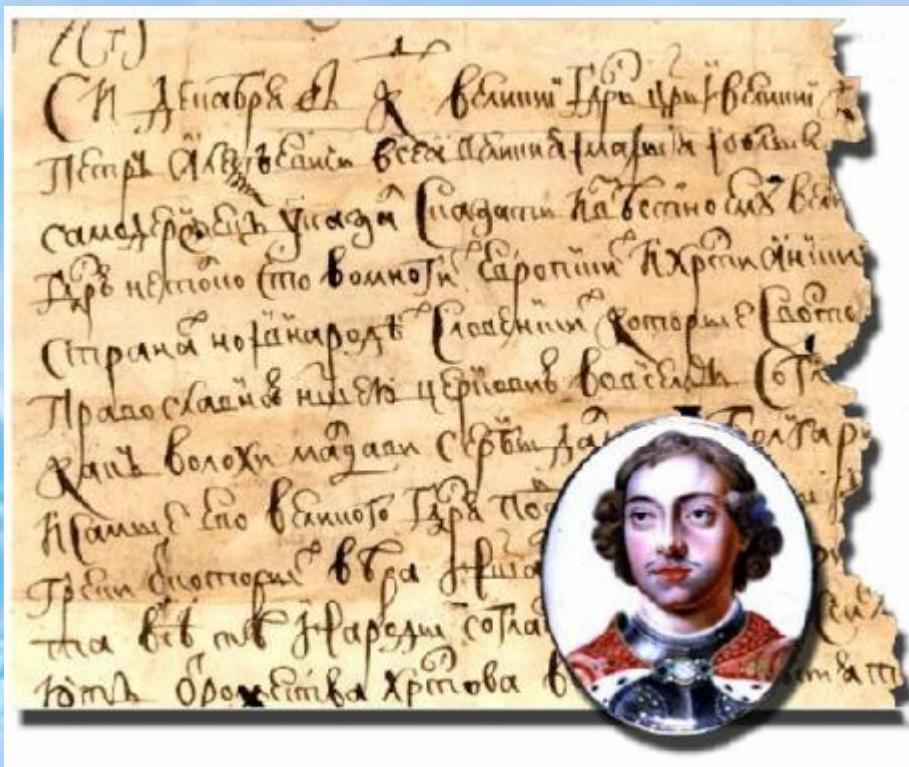 СИ декабря въ К великии гдрь црь и великии
Петръ Алеѯѣевичь всеа великия и малыя и белыя
самодержецъ указал сказати извѣстно ему вели
гдрю не толко что во многих европских и христианских
странах но и в народѣх словенских которые с восто
православною ншею церковию во всемъ согл
какъ волохи малдави сербы дал болгары
и самые его великого гдря под
греки от которых вѣра наша
та всѣ тѣ народы согла
ютъ от рожества христова в